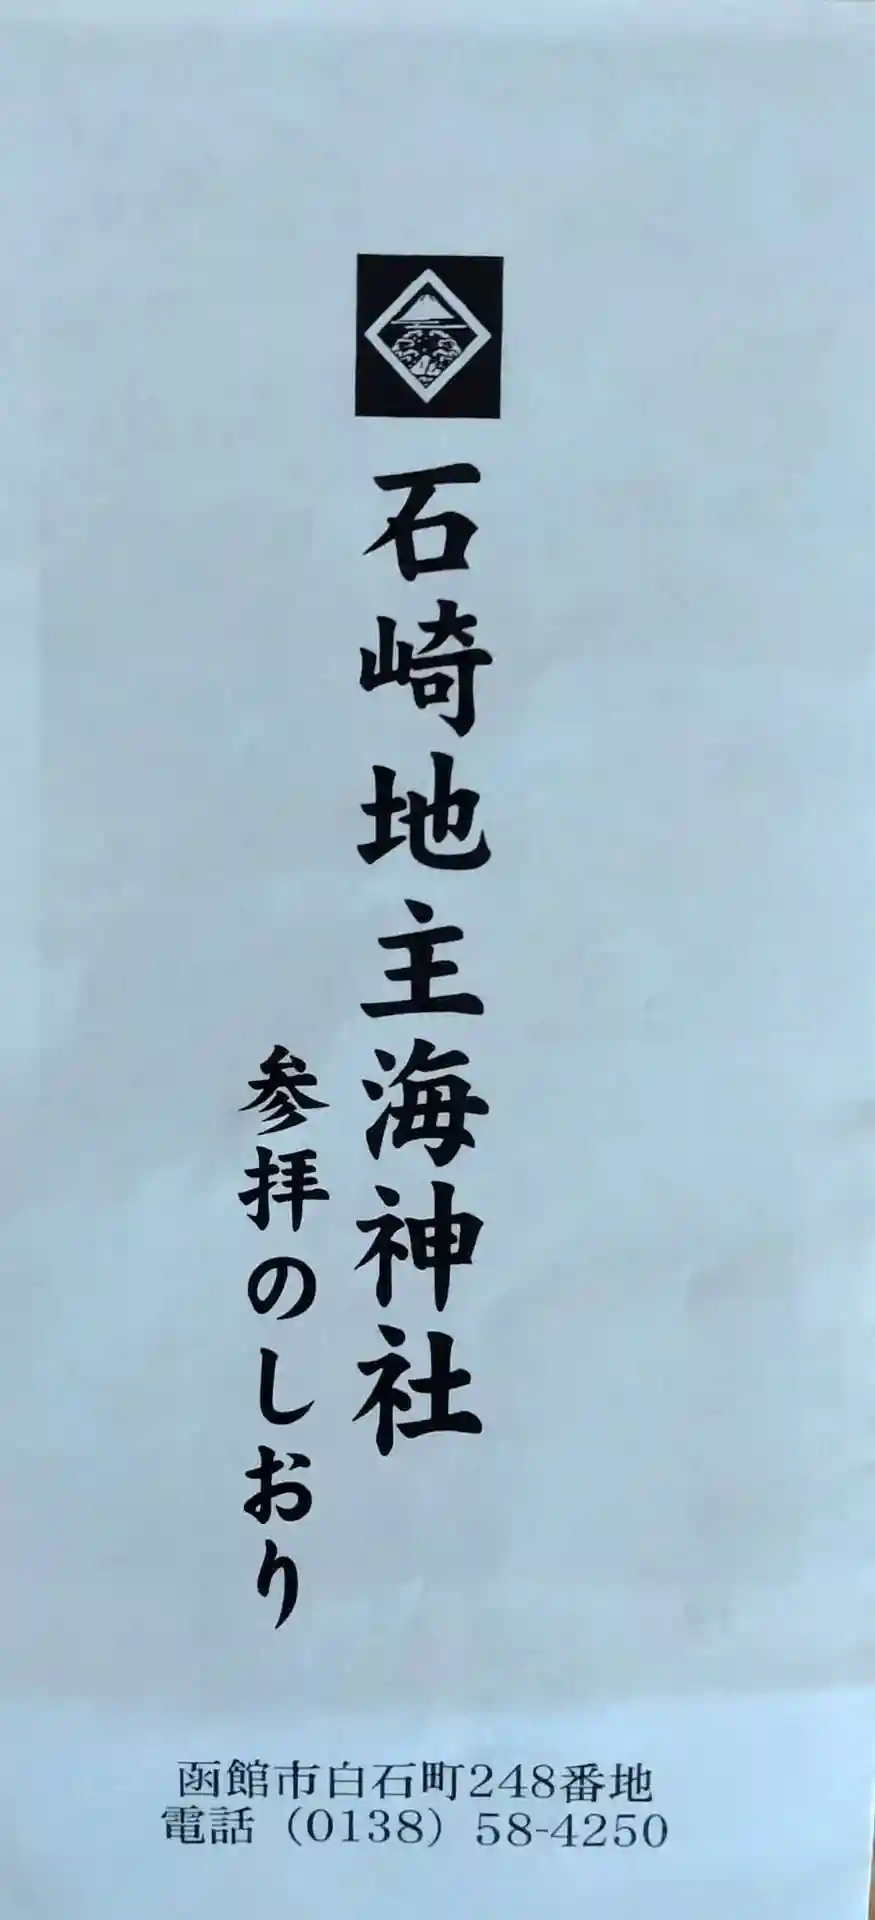 石崎地主海神社
参拝のしおり
函館市白石町248番地
電話（0138）58-4250